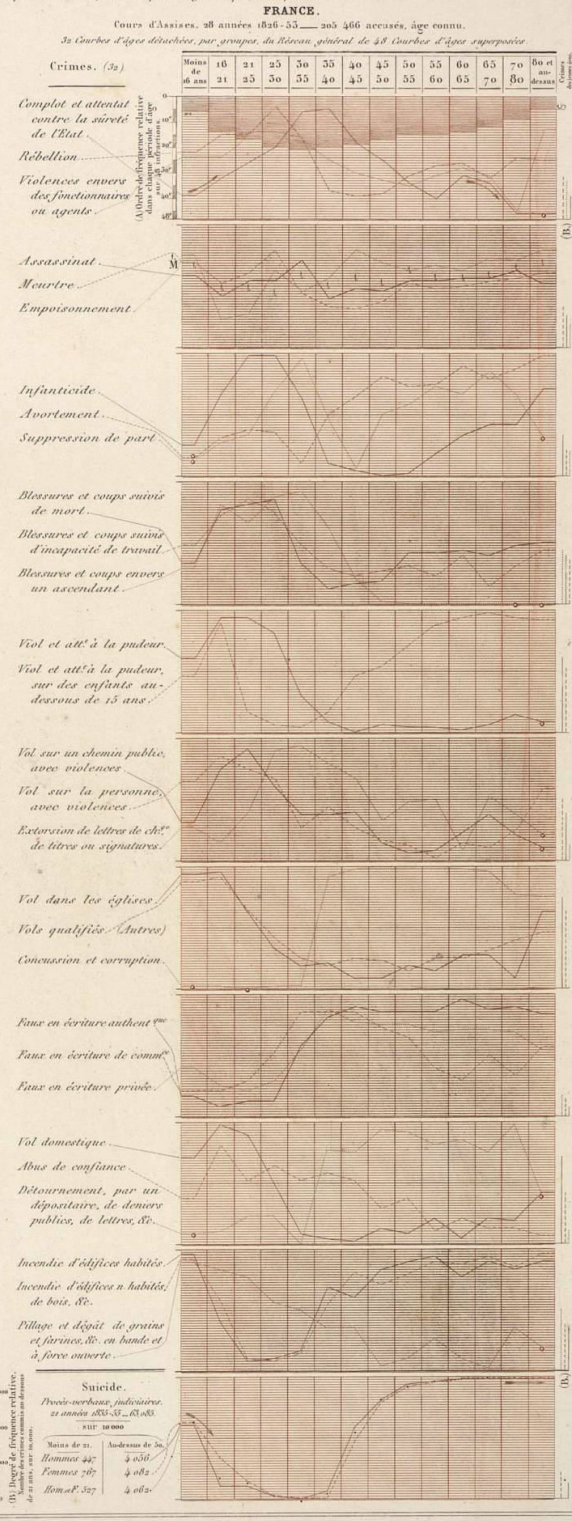 FRANCE.
Cours d'Assises, 28 années 1826-53 ___ 205 466 accusés, âge connu.
32 Courbes d'âges détachées, par groupes, du Réseau général de 48 Courbes d'âges superposées
Crimes. (32)
Moins de 16 ans
16 21
21 25
25 30
30 35
35 40
40 45
45 50
50 55
55 60
60 65
65 70
70 80
80 et au-dessus
Crimes
(A) Ordre de fréquence relative
dans chaque période d'âge
sur 48 infractions.
0
10e
20e
30e
40e
48e
Complot et attentat
contre la sûreté
de l'Etat.
Rébellion.
Violences envers
des fonctionnaires
ou agents.
(B.)
Assassinat.
Meurtre.
Empoisonnement.
M
Infanticide.
Avortement.
Suppression de part.
Blessures et coups suivis
de mort.
Blessures et coups suivis
d'incapacité de travail.
Blessures et coups envers
un ascendant.
Viol et att.t à la pudeur.
Viol et att.t à la pudeur,
sur des enfants au-
dessous de 15 ans.
Vol sur un chemin public,
avec violences.
Vol sur la personne,
avec violences.
Extorsion de lettres de ch.ge
de titres ou signatures.
Vol dans les églises.
Vols qualifiés. (Autres)
Concussion et corruption.
Faux en écriture authent.que
Faux en écriture de comm.ce
Faux en écriture privée.
Vol domestique.
Abus de confiance.
Détournement, par un
dépositaire, de deniers
publics, de lettres, &c.
Incendie d'édifices habités.
Incendie d'édifices n habités,
de bois, &c.
Pillage et dégât de grains
et farines, &c. en bande et
à force ouverte.
(B) Degré de fréquence relative.
Nombre des crimes commis au dessous
de 21 ans, sur 10,000.
Suicide.
Procès-verbaux judiciaires.
21 années 1835-55 _ 63,085.
sur 10 000
Moins de 21. Au-dessus de 50.
Hommes 447 4 056
Femmes 767 4 082
Hom. et F. 527 4 062
(B.)